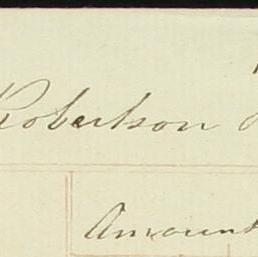 Robertson
Amount